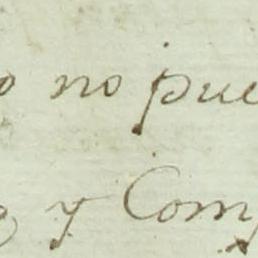 o no pue
y Com